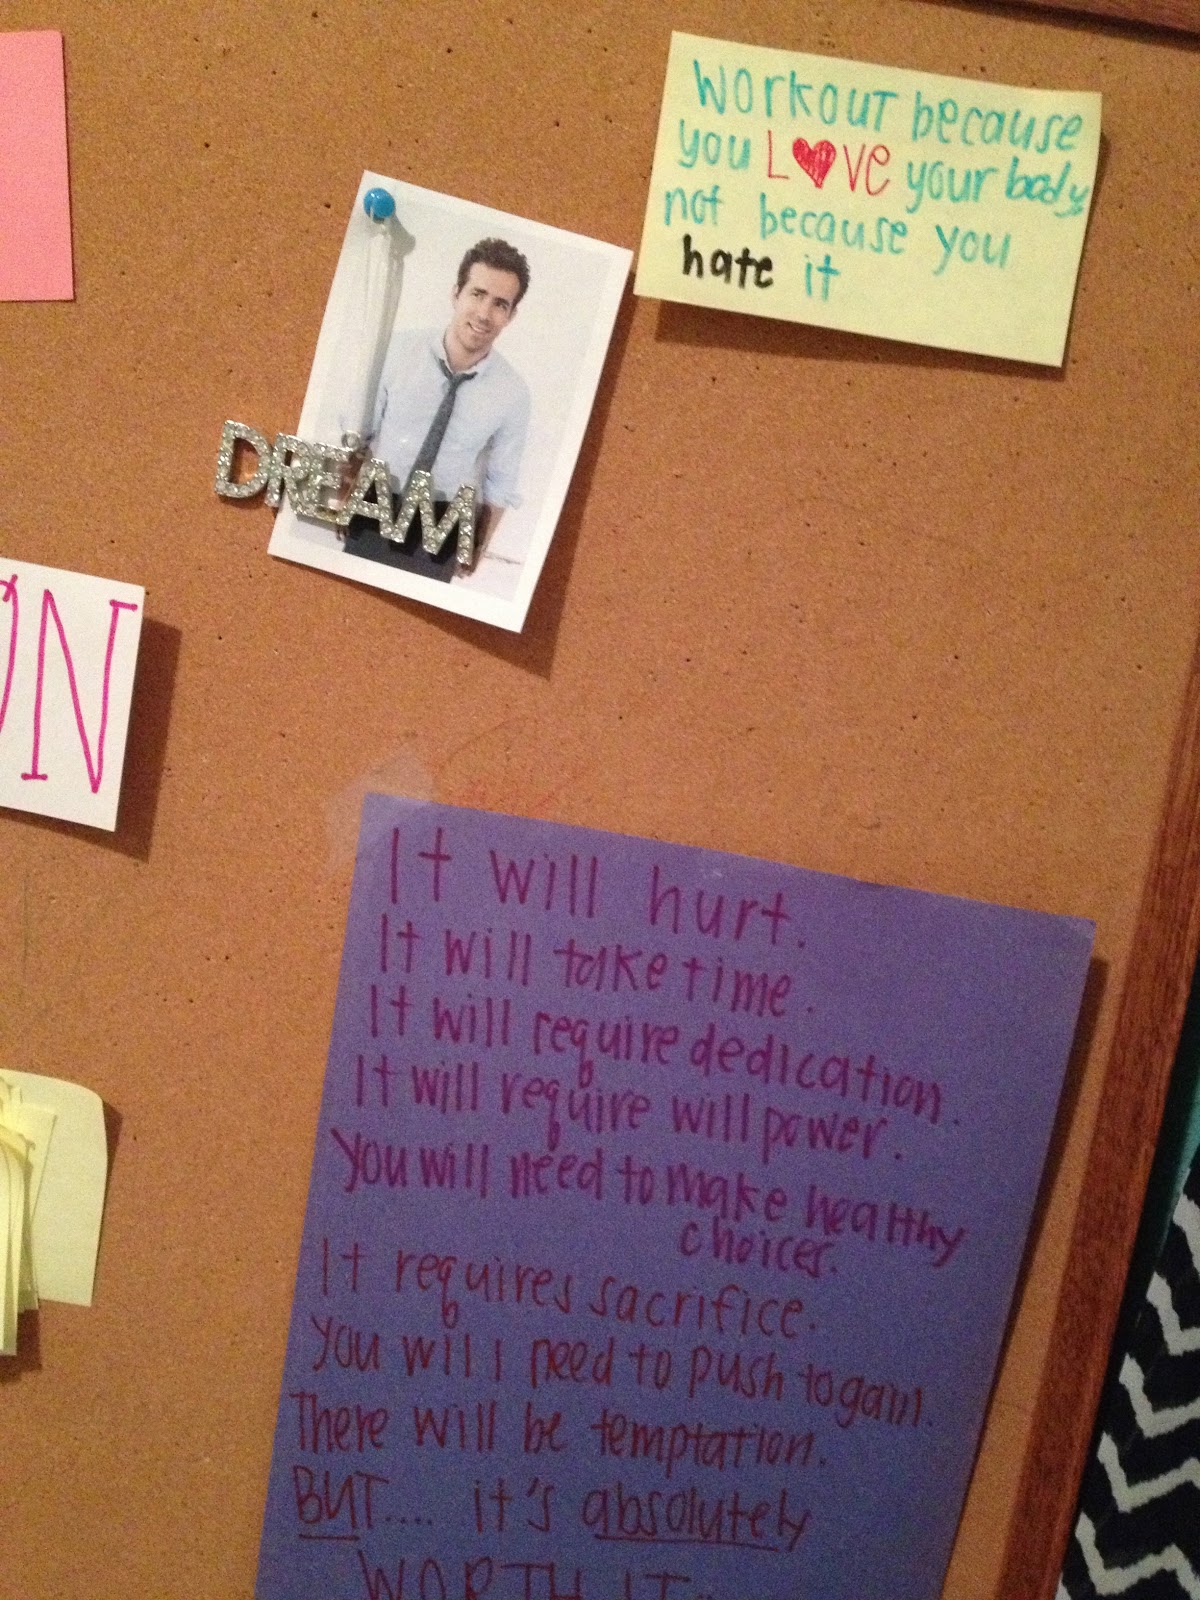 Workout because
you LOVE your body
not because you
hate it
DREAM
ON
It will hurt.
It will take time.
It will require dedication.
It will require will power.
You will need to make healthy
choices.
It requires sacrifice.
You will need to push to gain.
There will be temptation.
BUT.... it's absolutely
WORTH IT